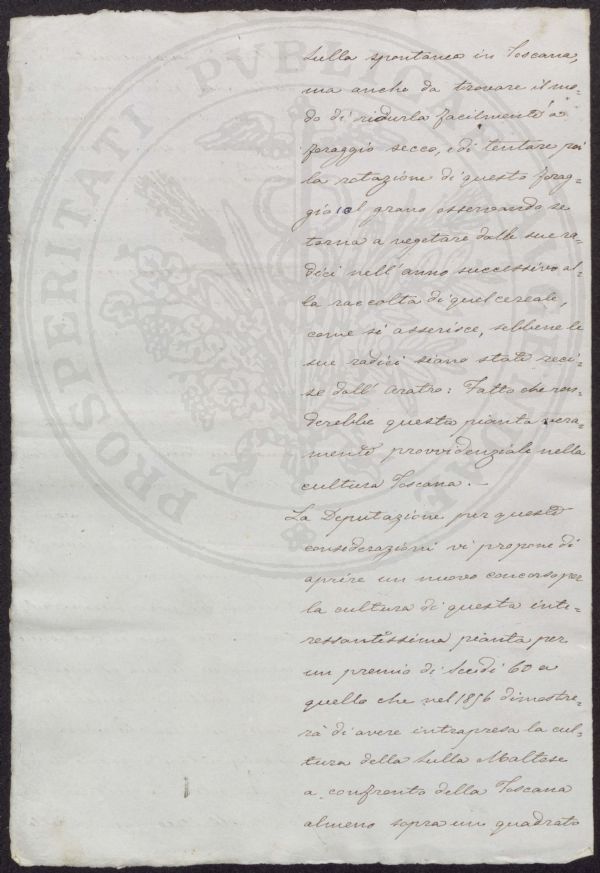 PROSPERITATI PUBLICAE AUGENDAE
sulla spontanea in Toscana,
ma anche da trovare il mo-
do di ridurla facilmente a
foraggio secco, e di tentare poi
la rotazione di questo forag-
gio col grano osservando se
torna a vegetare dalle sue ra-
dici nell'anno successivo al-
la raccolta di quel cereale,
come si asserisce, sebbene le
sue radici siano state reci-
se dall'aratro: Fatto che ren-
derebbe questa pianta vera-
mente provvidenziale nella
cultura Toscana. —
La Deputazione per queste
considerazioni vi propone di
aprire un nuovo concorso per
la cultura di questa inte-
ressantissima pianta per
un premio di Scudi 60 a
quello che nel 1856 dimostre-
rà di avere intrapresa la cul-
tura della Sulla Maltese
a confronto della Toscana
almeno sopra un quadrato